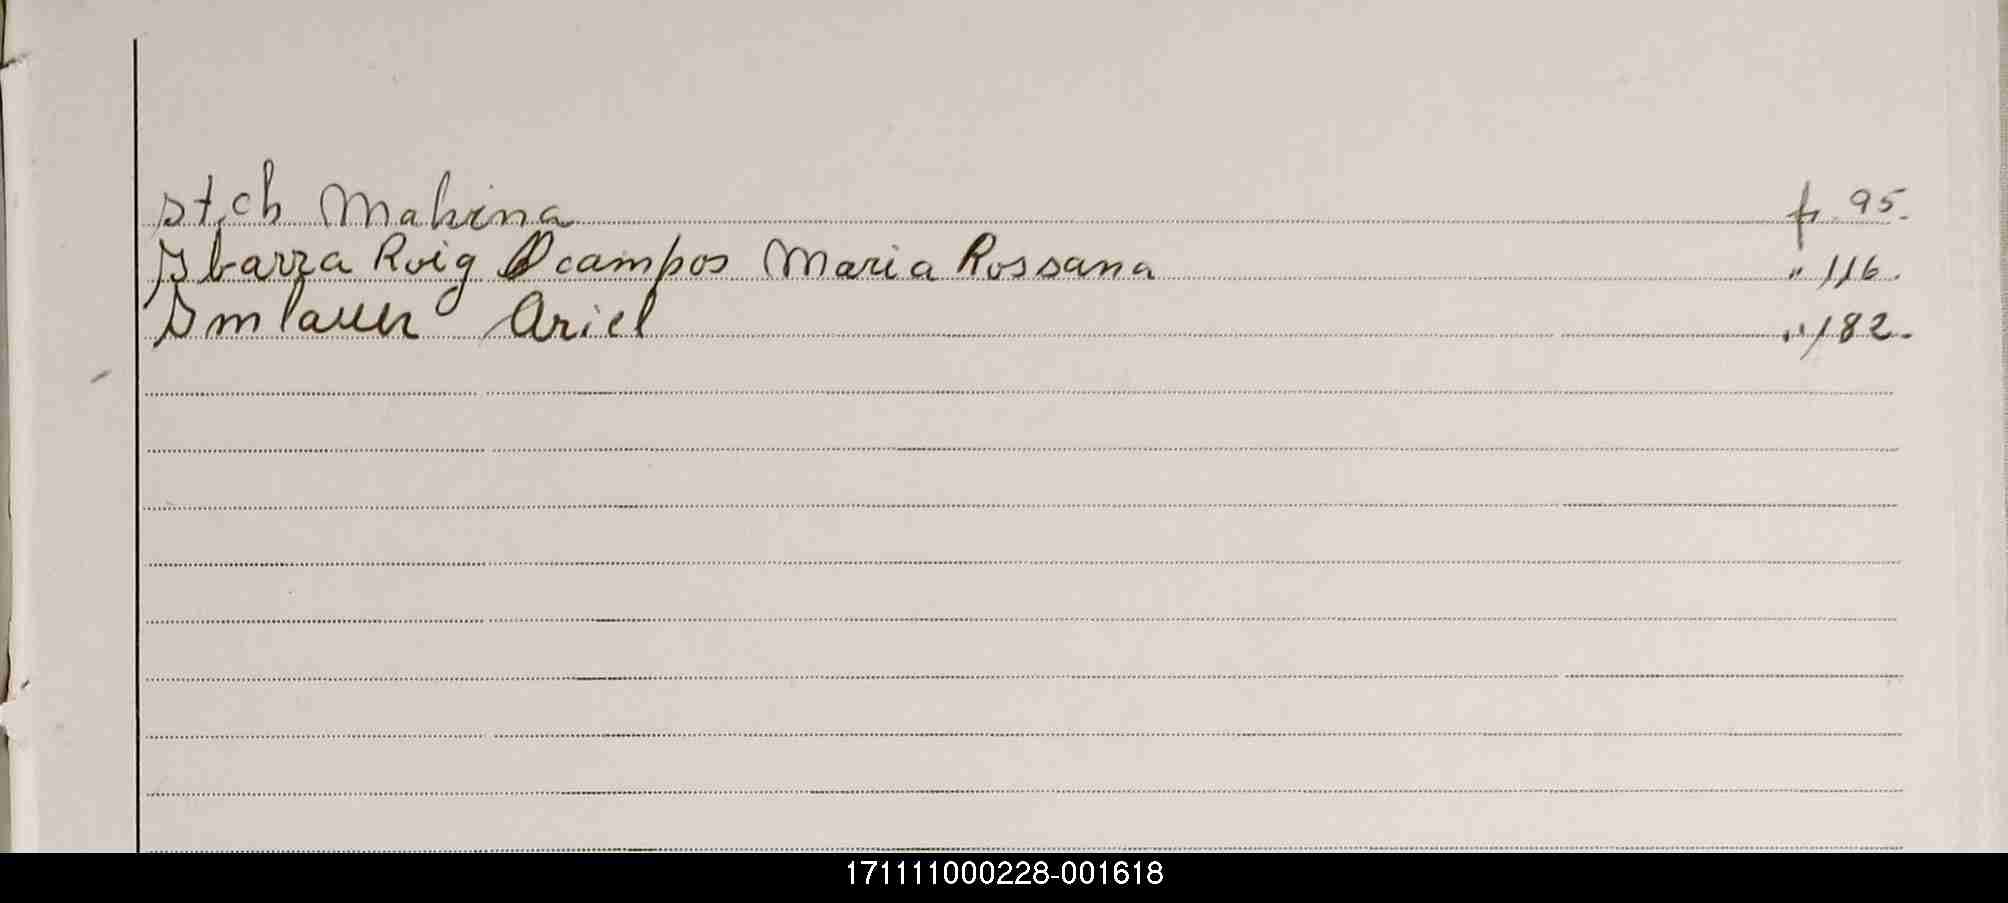 Itich Mahina f 95.
Ibarra Roig Ocampos Maria Rossana " 116.
Imlauer Ariel " 182.
171111000228-001618